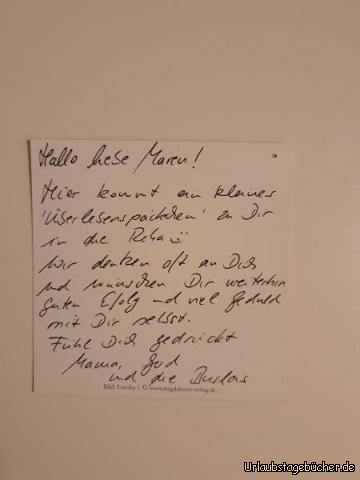 Hallo liebe Maren!
Hier kommt ein kleines
'Überlebenspäckchen' zu Dir
in die Reha
Wir denken oft an Dich
und wünschen Dir weiterhin
guten Erfolg und viel Geduld
mit Dir selbst.
Fühle Dich gedrückt
Mama,
und die
Bild: Fotolia | © www.magdalenen-verlag.de
Urlaubstagebücher.de